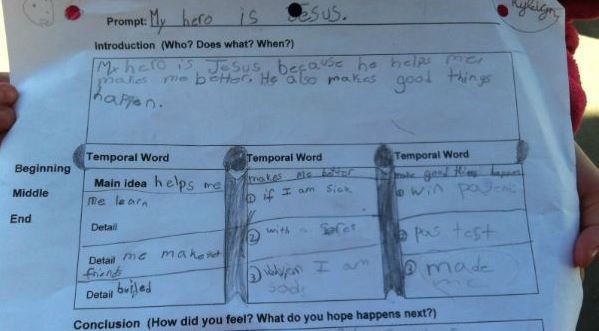 Kyleigh
Prompt: My hero is JESUS.
Introduction (Who? Does what? When?)
My hero is Jesus because he helps me,
makes me better. He also makes good things
happen.
Beginning
Middle
End
Temporal Word
Main idea helps me
me learn
Detail
Detail me make
friends
Detail
Temporal Word
makes me better
① if I am sick
② with a
③ I am
Temporal Word
make good things happen
① win
② pas test
③ made
me
Conclusion (How did you feel? What do you hope happens next?)